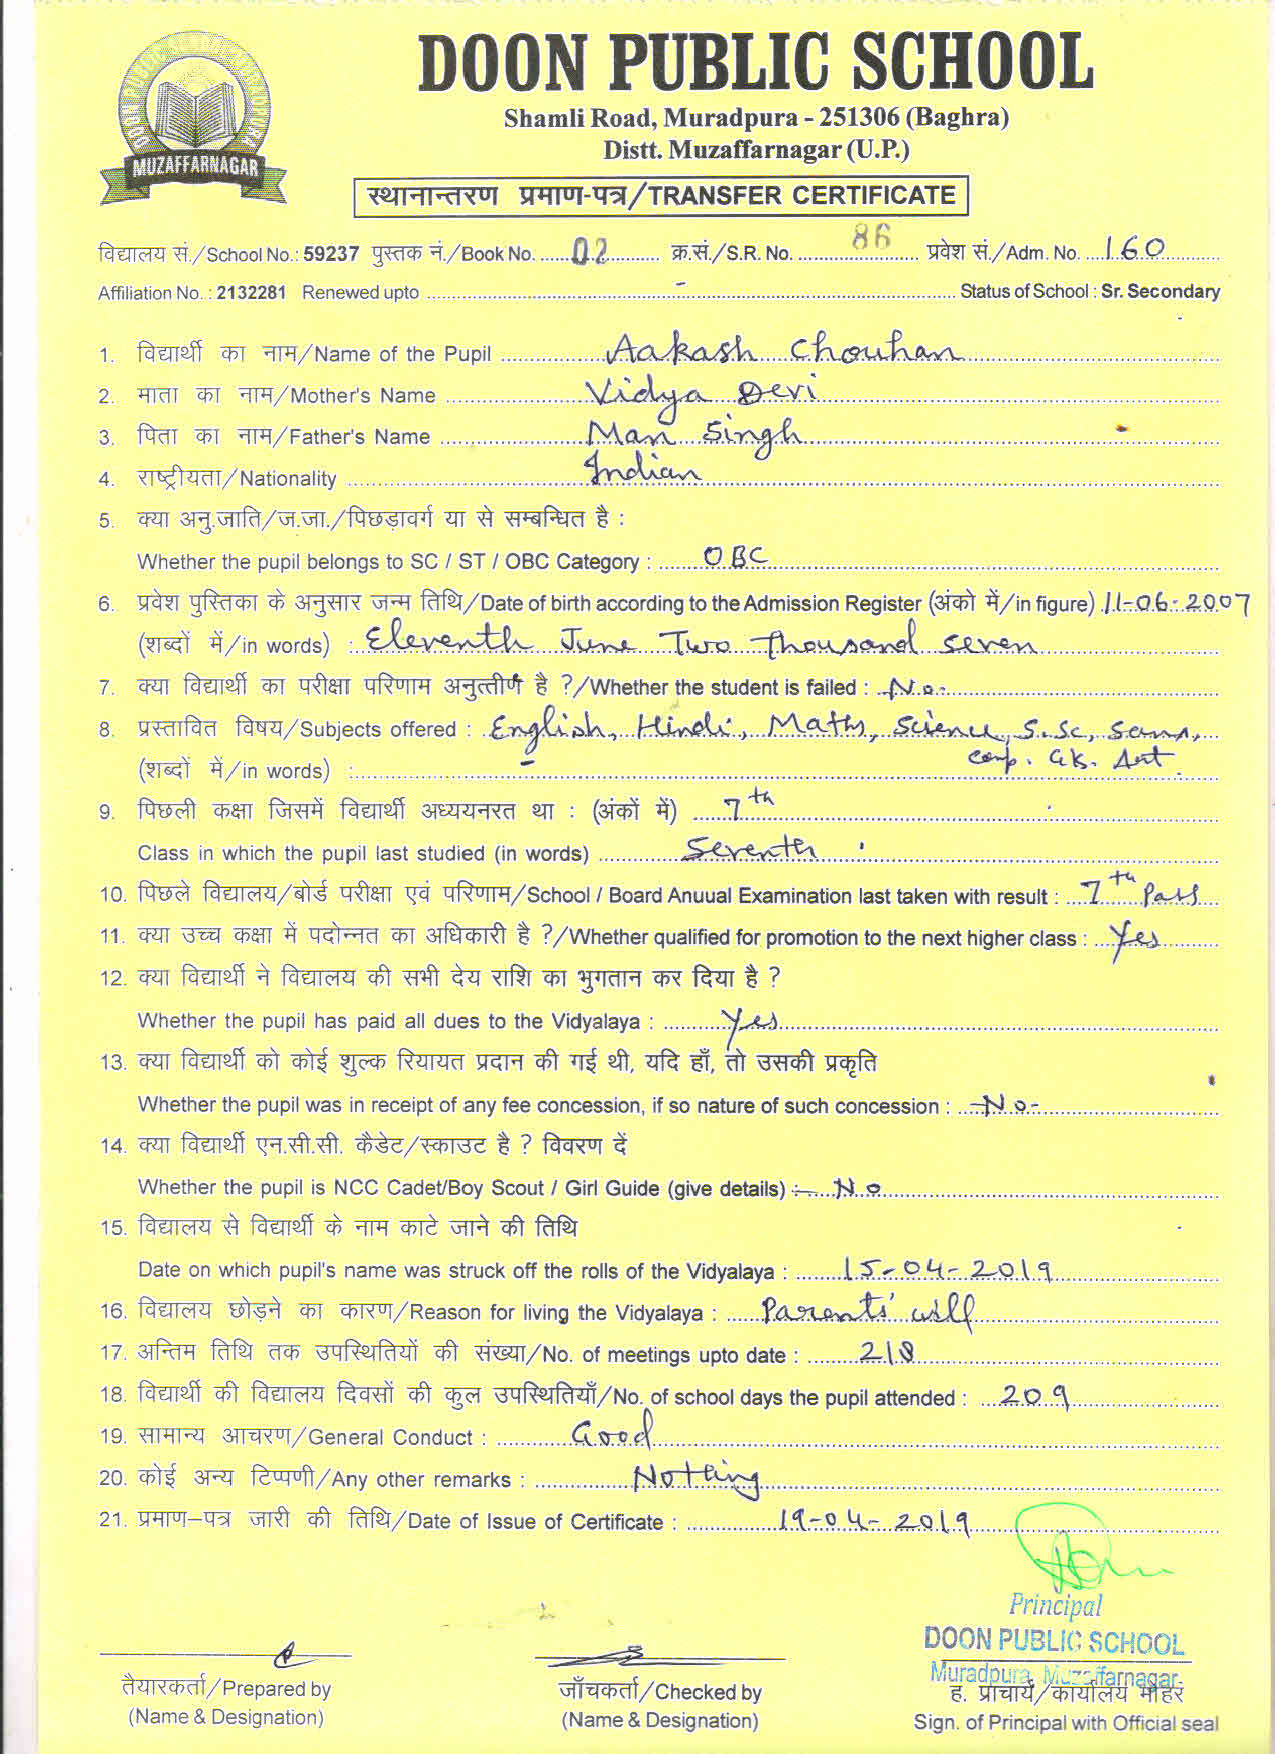 DOON PUBLIC SCHOOL MUZAFFARNAGAR
MUZAFFARNAGAR
DOON PUBLIC SCHOOL
Shamli Road, Muradpura - 251306 (Baghra)
Distt. Muzaffarnagar (U.P.)
स्थानान्तरण प्रमाण-पत्र/TRANSFER CERTIFICATE
विद्यालय सं./School No.: 59237 पुस्तक नं./Book No. 02 क्र.सं./S.R. No. 86 प्रवेश सं./Adm. No. 160
Affiliation No. : 2132281 Renewed upto - Status of School : Sr. Secondary
1. विद्यार्थी का नाम/Name of the Pupil Aakash Chouhan
2. माता का नाम/Mother's Name Vidya Devi
3. पिता का नाम/Father's Name Man Singh
4. राष्ट्रीयता/Nationality Indian
5. क्या अनु.जाति/ज.जा./पिछड़ावर्ग या से सम्बन्धित है :
Whether the pupil belongs to SC / ST / OBC Category : OBC
6. प्रवेश पुस्तिका के अनुसार जन्म तिथि/Date of birth according to the Admission Register (अंको में/in figure) 11-06-2007
(शब्दों में/in words) : Eleventh June Two Thousand Seven
7. क्या विद्यार्थी का परीक्षा परिणाम अनुत्तीर्ण है ?/Whether the student is failed : No
8. प्रस्तावित विषय/Subjects offered : English, Hindi, Maths, Science, S.Sc, Sans,
(शब्दों में/in words) : Comp. GK. Art
9. पिछली कक्षा जिसमें विद्यार्थी अध्ययनरत था : (अंकों में) 7th
Class in which the pupil last studied (in words) Seventh
10. पिछले विद्यालय/बोर्ड परीक्षा एवं परिणाम/School / Board Anuual Examination last taken with result : 7th Pass
11. क्या उच्च कक्षा में पदोन्नत का अधिकारी है ?/Whether qualified for promotion to the next higher class : Yes
12. क्या विद्यार्थी ने विद्यालय की सभी देय राशि का भुगतान कर दिया है ?
Whether the pupil has paid all dues to the Vidyalaya : Yes
13. क्या विद्यार्थी को कोई शुल्क रियायत प्रदान की गई थी, यदि हाँ, तो उसकी प्रकृति
Whether the pupil was in receipt of any fee concession, if so nature of such concession : -No-
14. क्या विद्यार्थी एन.सी.सी. कैडेट/स्काउट है ? विवरण दें
Whether the pupil is NCC Cadet/Boy Scout / Girl Guide (give details) :- No
15. विद्यालय से विद्यार्थी के नाम काटे जाने की तिथि
Date on which pupil's name was struck off the rolls of the Vidyalaya : 15-04-2019
16. विद्यालय छोड़ने का कारण/Reason for living the Vidyalaya : Parents' will
17. अन्तिम तिथि तक उपस्थितियों की संख्या/No. of meetings upto date : 218
18. विद्यार्थी की विद्यालय दिवसों की कुल उपस्थितियाँ/No. of school days the pupil attended : 209
19. सामान्य आचरण/General Conduct : Good
20. कोई अन्य टिप्पणी/Any other remarks : Nothing
21. प्रमाण-पत्र जारी की तिथि/Date of Issue of Certificate : 19-04-2019
Principal
DOON PUBLIC SCHOOL
Muradpura, Muzaffarnagar
तैयारकर्ता/Prepared by
(Name & Designation)
जाँचकर्ता/Checked by
(Name & Designation)
ह. प्राचार्य/कार्यालय मोहर
Sign. of Principal with Official seal